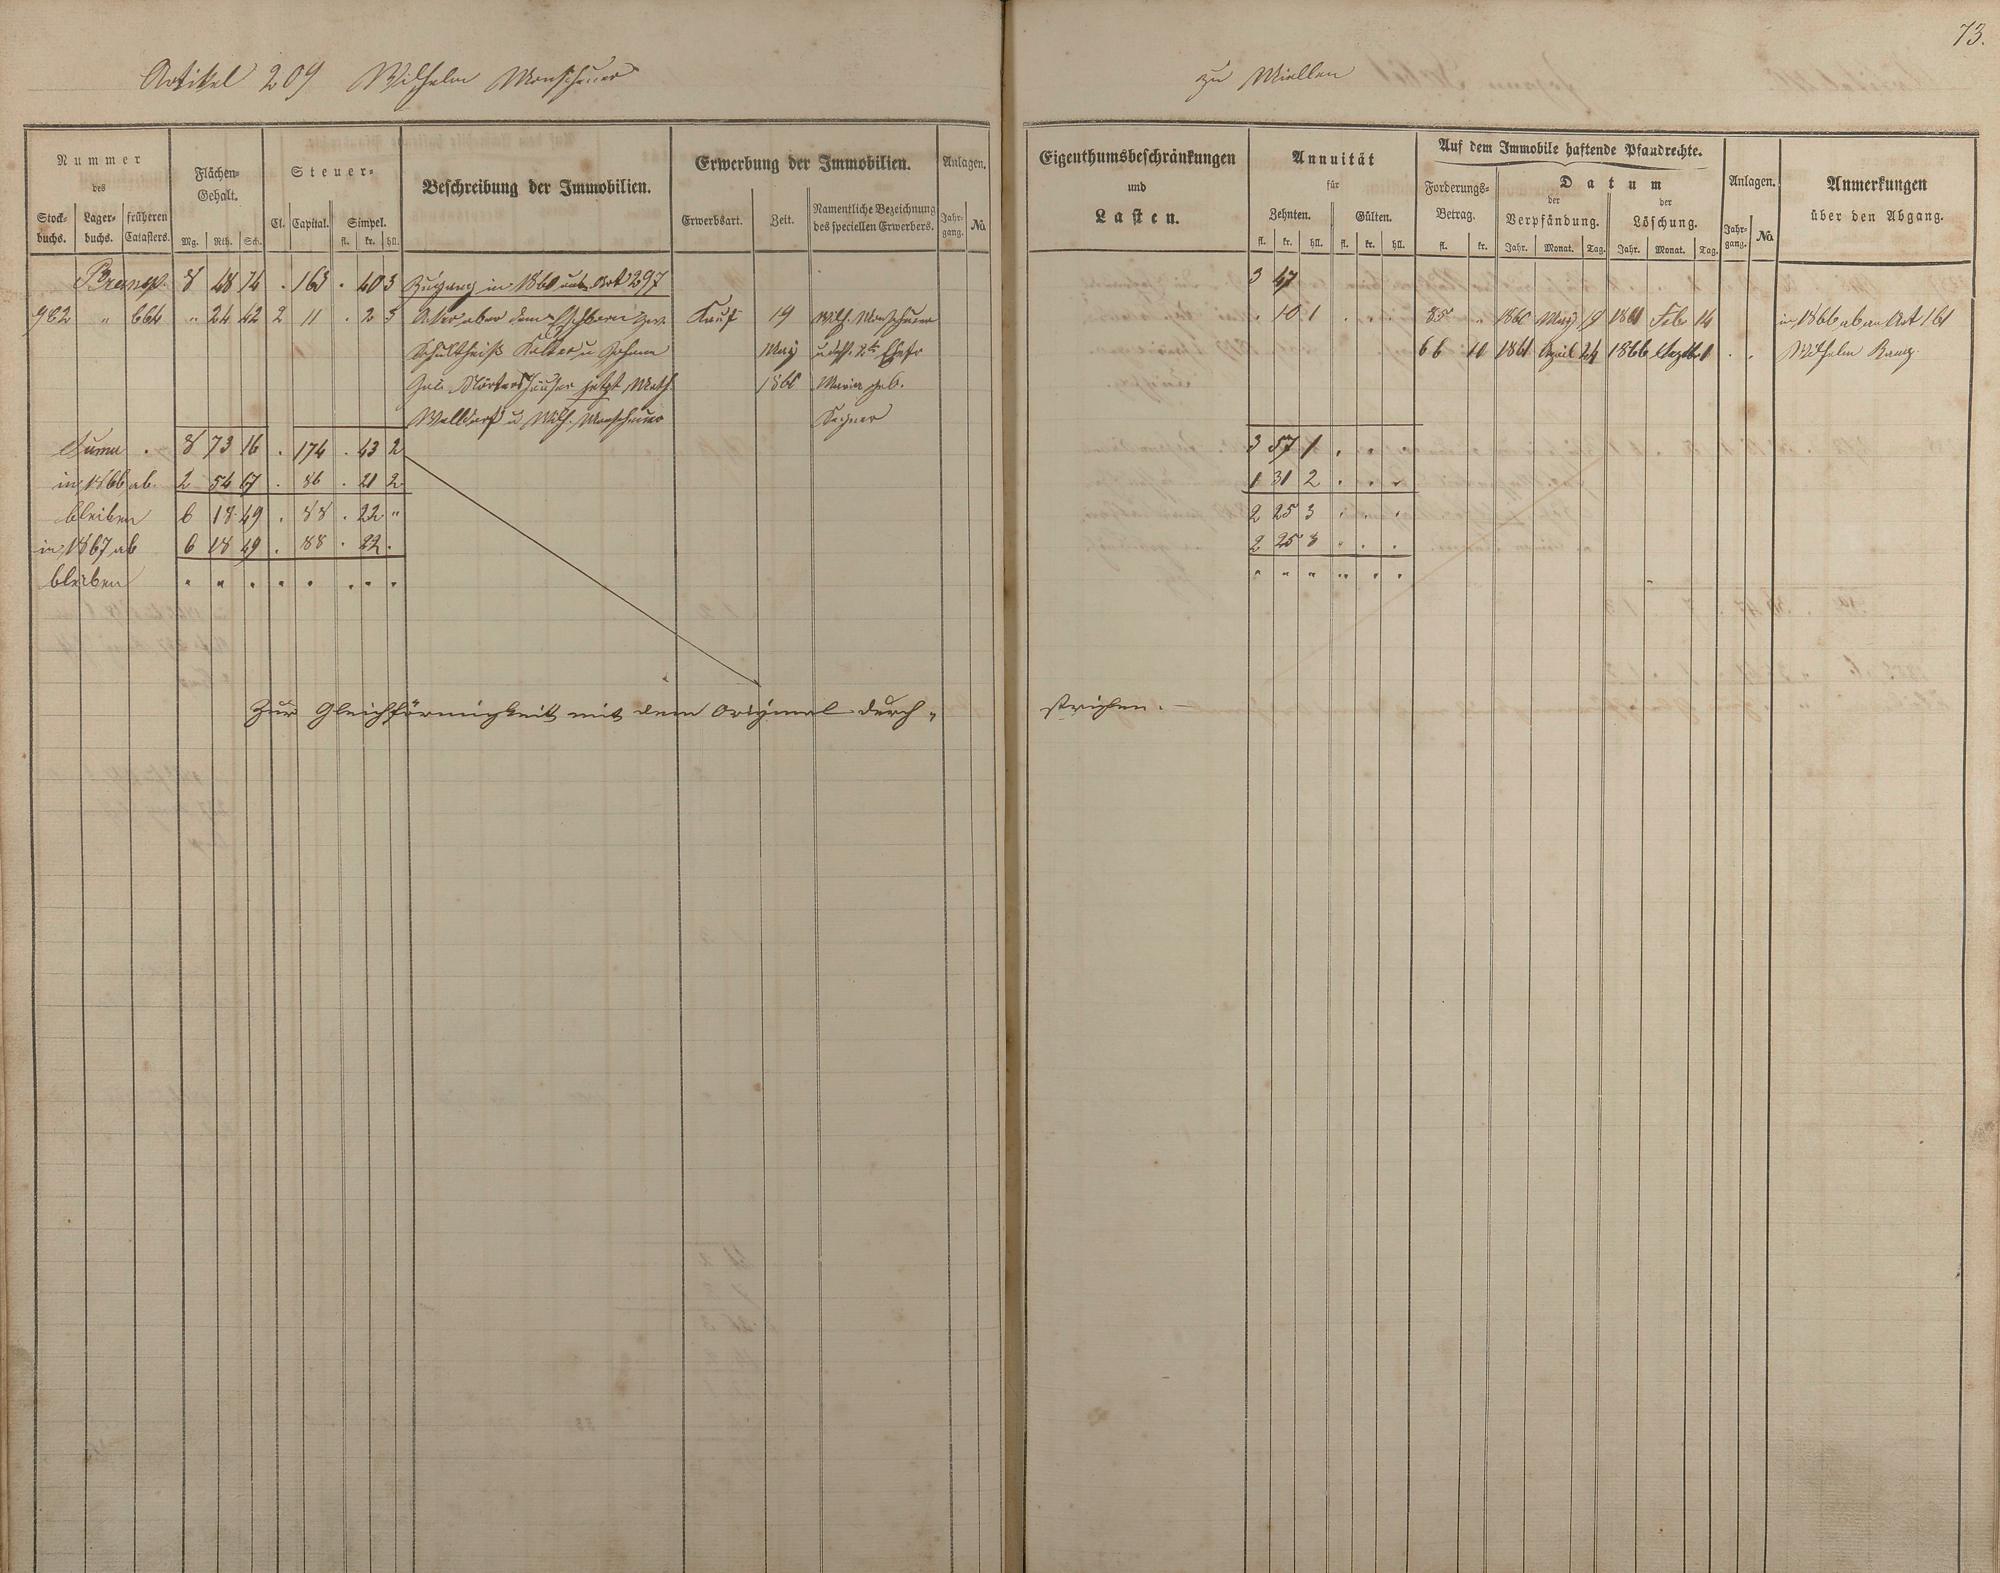 73.
Artikel 209 Wilhelm Monschauer zu Miellen
Nummer des
Stockbuchs. Lagerbuchs. früheren Catasters.
Flächen-Gehalt.
Mg. Rth. Sch.
Steuer-
Cl. Capital. Simpel.
fl. kr. hll.
Beschreibung der Immobilien.
Erwerbung der Immobilien.
Erwerbsart. Zeit. Namentliche Bezeichnung des speciellen Erwerbers.
Anlagen.
Jahrgang. No.
Eigenthumsbeschränkungen
und
Lasten.
Annuität
für
Zehnten. Gülten.
fl. kr. hll. fl. kr. hll.
Auf dem Immobile haftende Pfandrechte.
Forderungs-Betrag.
fl. kr.
Datum
der Verpfändung. der Löschung.
Jahr. Monat. Tag. Jahr. Monat. Tag.
Anlagen.
Jahrgang. No.
Anmerkungen
über den Abgang.
8 48 74 . 163 . 40 3 Zugang in 1860 aus Art 297 3 47
982 " 664 " 24 42 2 11 . 2 3 Acker ober dem zw. Kauf 19 Wilh. Monschauer . 10 1 . . . 85 " 1860 May 19 1861 Feb 14 in 1866 ab an Art 161
Schultheiß u Johann May u dess. Ehefr 66 10 1861 April 24 1866 Septb 1 . . Wilhelm
jetzt Math. 1860 Maria geb.
u Wilh. Monschauer
Summa . 8 73 16 . 174 . 43 2 3 57 1 . . .
in 1866 ab. 2 54 67 . 86 . 21 2 1 31 2 . . .
bleiben 6 18 49 . 88 . 22 " 2 25 3 . . .
in 1867 ab 6 18 49 . 88 . 22 . 2 25 3 " . .
bleiben " " . . . . . . " " " " . .
Zur Gleichförmigkeit mit dem Original durch-
strichen. –